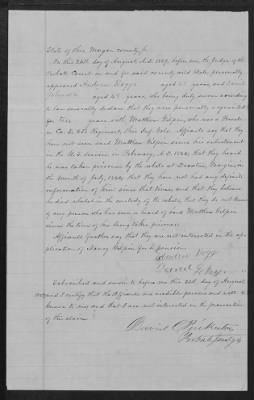 State of Ohio Morgan county ss
On this 24th day of August A.D. 1889, before me, the Judge of the
Probate Court in and for said county and State personally
appeared Andrew aged 45 years, and David
aged 43 years, who being duly sworn according
to law severally declare that they were personally acquainted
for two years with Matthew Kilpin, who was a Private
in Co. Regiment, Ohio Inf. Vols. Affiants say that they
have not seen said Matthew since his enlistment
in the U.S. Service in February, A.D. 1864; that they heard
he was taken prisoner by the rebels at
the month of July, 1864; that they have not had any definite
information of him since that time; and that they believe
he died whilst in the custody of the rebels; that they do not know
of any person who has seen or heard of said Matthew Kilpin
since the time of his being taken prisoner.
Affiants further say that they are not interested in the ap-
plication of Nancy Kilpin for a pension.
Andrew
David
Subscribed and sworn to before me this 24th day of August,
1889, and I certify that the Affiants are credible persons and well
known to me; and that I am not interested in the prosecution
of this claim.
David
Probate Judge